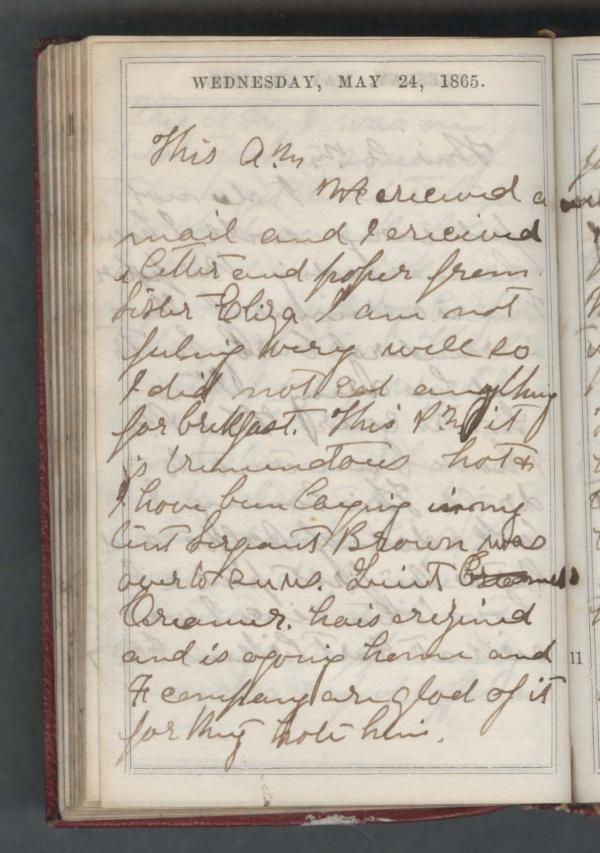 WEDNESDAY, MAY 24, 1865.
This A.M
We ereceived a
mail and I ereceived
a letter and paper from
Sister Eliza I am not
feeling very well so
I did not eat anything
for brekfast. This P.M it
is tremendous hot &
I have been laying in my
tent Sergeant Brown was
over to see us. Lieut
Creamer. hais erezined
and is agoing home and
F company are glad of it
for they hate him.
11